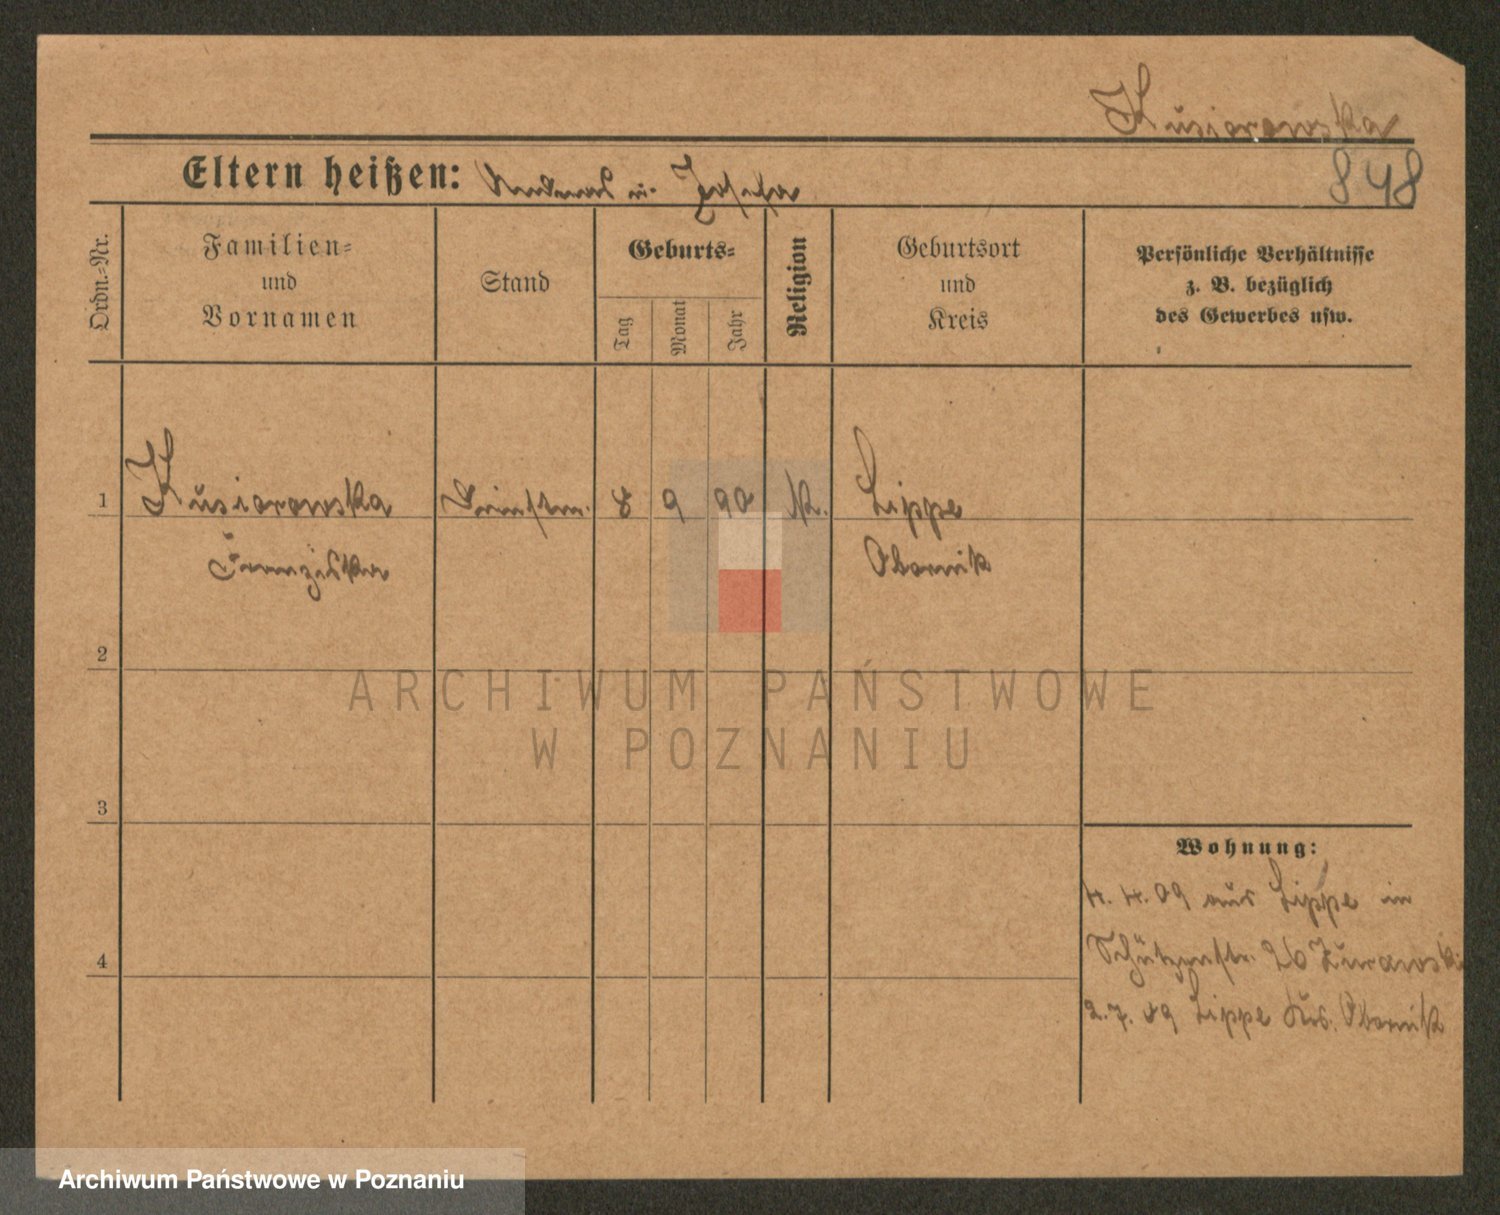 Kusiorowska
848
Eltern heißen: Andreas u. Josefa
Ordn.=Nr.
Familien=
und
Vornamen
Stand
Geburts=
Tag
Monat
Jahr
Religion
Geburtsort
und
Kreis
Persönliche Verhältnisse
z. B. bezüglich
des Gewerbes usw.
1 Kusiorowska 8 9 90 K. Lippe
Franziska Obornik
2
3
ARCHIWUM PAŃSTWOWE
W POZNANIU
Wohnung:
4. 4. 09 aus Lippe in
Schützenstr. 26 Żurawski
4
2. 7. 09 Lippe Krs. Obornik
Archiwum Państwowe w Poznaniu